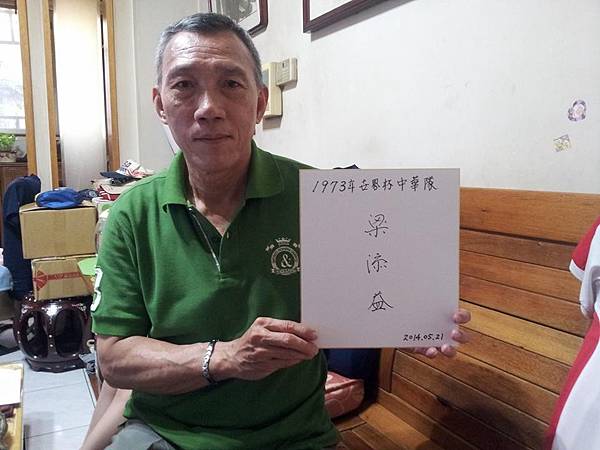 1973年世界杯中華隊
梁
添
益
2014.05.21
&